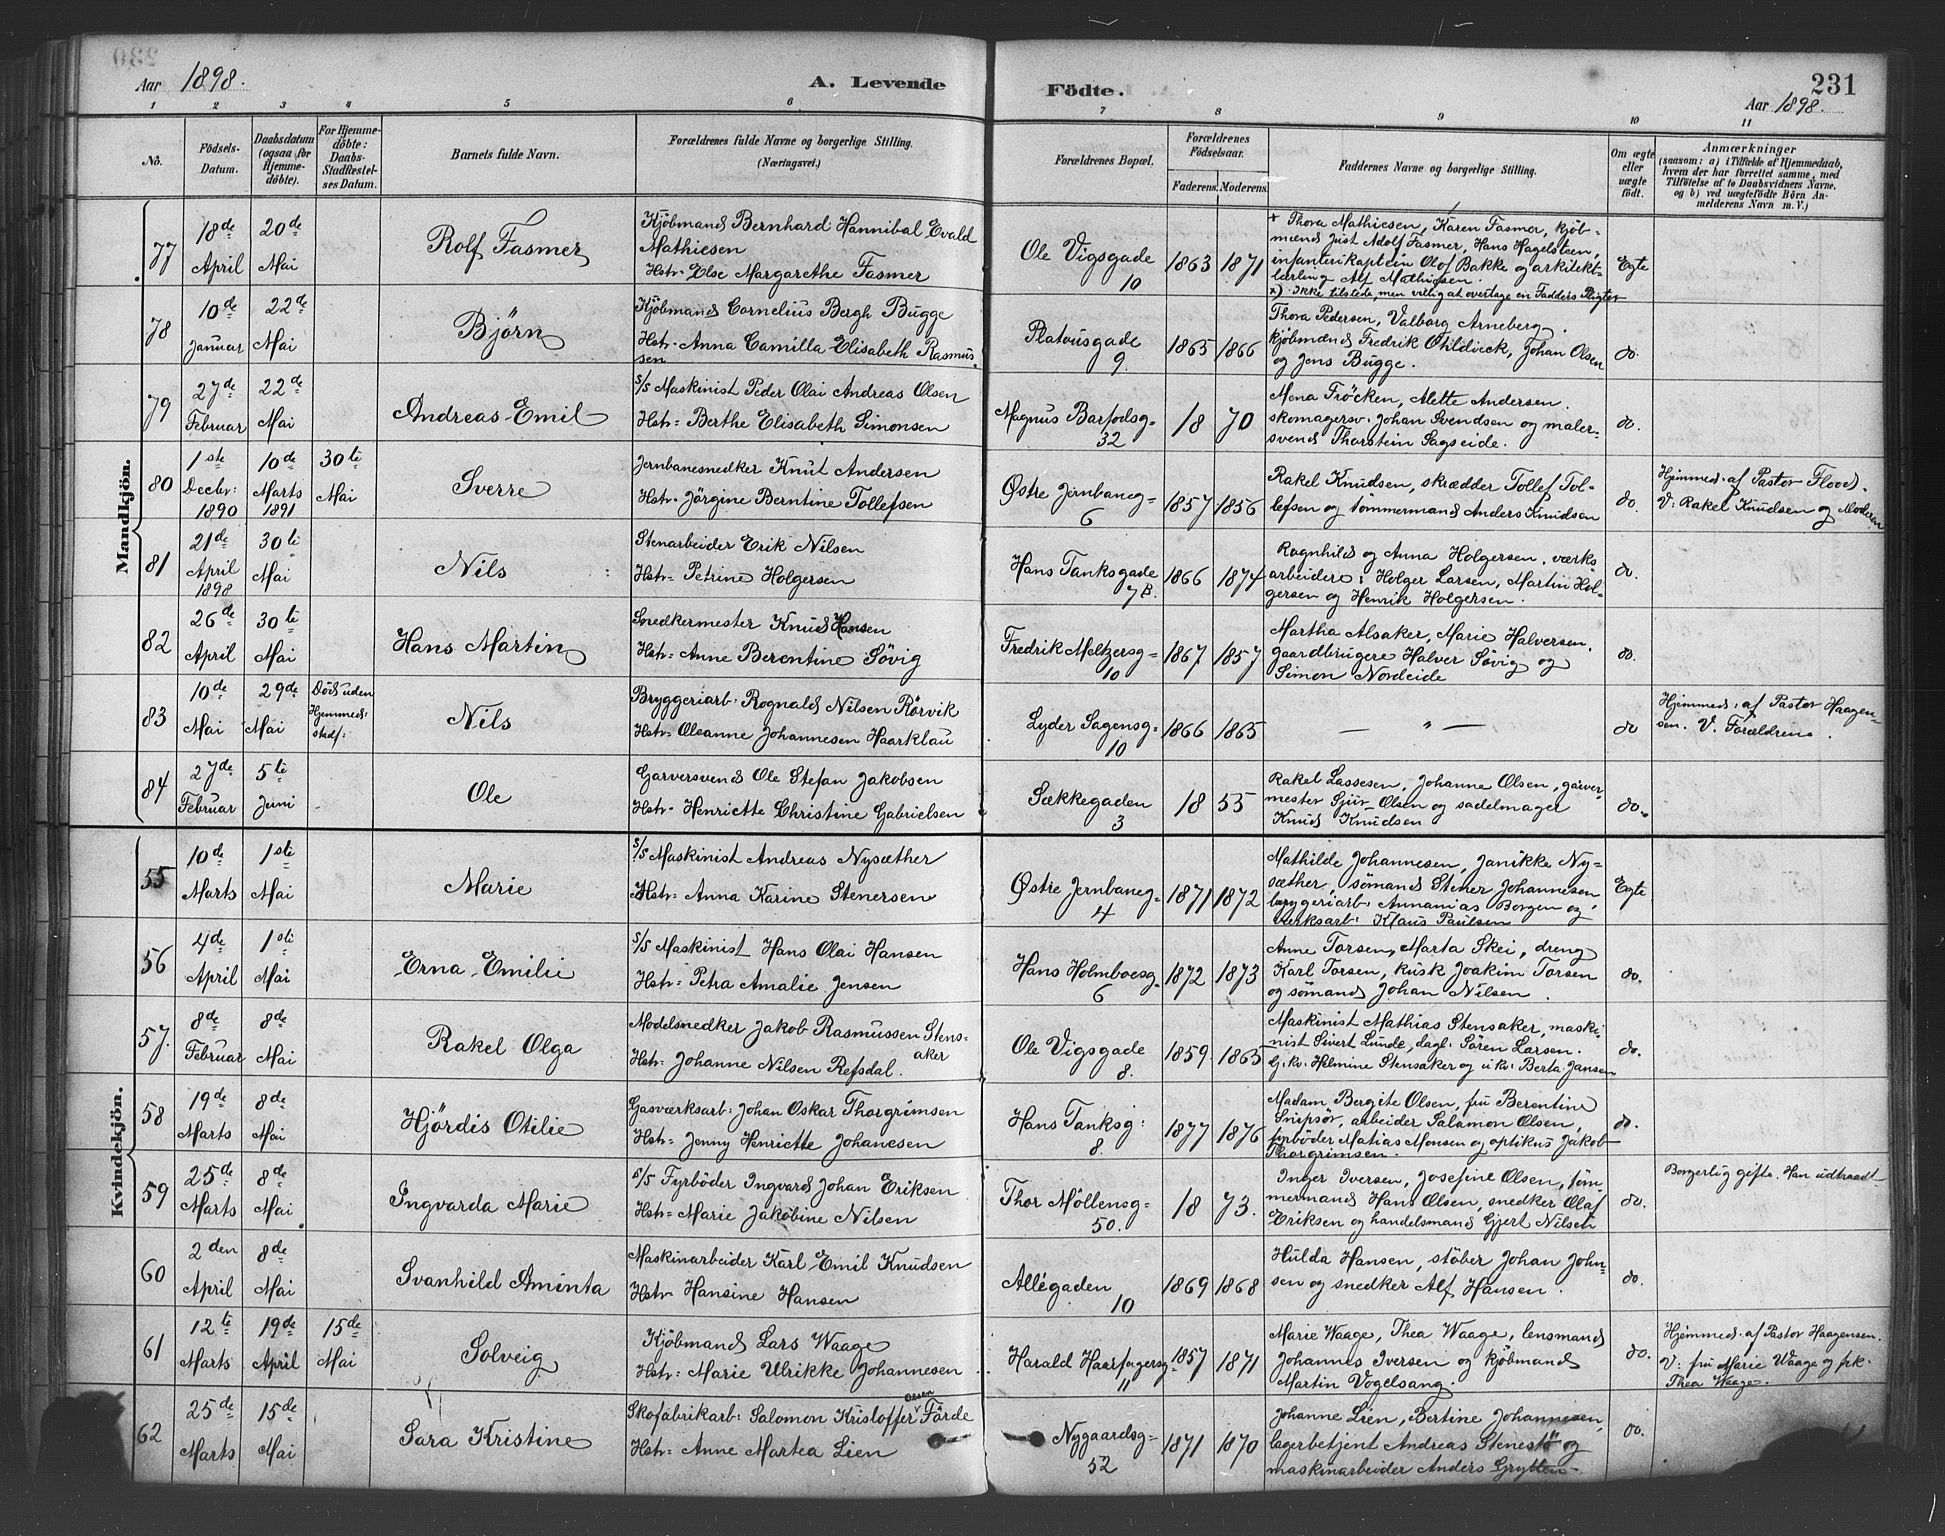 Aar 1898. A. Levende Födte. 231
Aar 1898.
1 2 3 4 5 6 7 8 9 10 11
No. Födsels-Datum. Daabsdatum (ogsaa for Hjemme-döbte). For Hjemme-döbte: Daabs-Stadfæstelses Datum. Barnets fulde Navn. Forældrenes fulde Navne og borgerlige Stilling. (Næringsvei.) Forældrenes Bopæl. Forældrenes Födselsaar. Faderens. Moderens. Faddernes Navne og borgerlige Stilling. Om ægte eller uægte födt. Anmærkninger (saasom: a) i Tilfælde af Hjemmedaab, hvem der har forrettet samme, med Tilföielse af to Daabsvidners Navne, og b) ved uægtefödte Börn Anmelderens Navn m. V.)
Mandkjön.
77 18de April 20de Mai Rolf Fasmer
Kjöbmand Bernhard Hannibal Evald
Mathiesen
Hstr. Else Margarethe Fasmer
Ole Vigsgade 10 1863 1871
x Thora Mathiesen, Karen Fasmer, kjöb-
mænd Just Adolf Fasmer, Hans Hagelsteen,
infanterikaptein Olof Bakke og arkitekt-
lærling Alf Mathiesen.
x) Ikke tilstede, men villig at overtage en Fadders Pligter
Egte
78 10de Januar 22de Mai Björn
Kjöbmand Cornelius Bergh Bugge
Hstr. Anna Camilla Elisabeth Rasmus
sen
Platousgade 9. 1865 1866
Thora Pedersen, Valborg Arneberg.
kjöbmænd Fredrik Ohldieck, Johan Olsen
og Jens Bugge.
do.
79 27de Februar 22de Mai Andreas Emil
S/S Maskinist Peder Olai Andreas Olsen
Hstr. Berthe Elisabeth Simonsen
Magnus Barfodsg. 32 18 70
Mena Fröcken, Mette Andersen.
skomagersv. Johan Svendsen og maler-
svend Thorstein Sagseide.
do.
80 1ste Decbr: 1890 10de Marts 1891 30te Mai Sverre
Jernbanesnedker Knut Andersen
Hstr. Jörgine Berntine Tollefsen
Østre Jernbaneg. 6 1857 1856
Rakel Knudsen, skrædder Tollef Tol-
lefsen og tömmermand Anders Knudsen
do.
Hjemmed. af Pastor Flood.
V: Rakel Knudsen og Moderen
81 21de April 1898 30te Mai Nils
Stenarbeider Erik Nilsen
Hstr. Petrine Holgersen
Hans Tanksgade 7B. 1866 1874
Ragnhild og Anna Holgersen, værks
arbeidere: Holger Larsen, Martin Hol-
gersen og Henrik Holgersen.
do.
82 26de April 30te Mai Hans Martin
Snedkermester Knud Hansen
Hstr. Anne Berentine Sövig
Fredrik Meltzersg. 10 1867 1857
Martha Alsaker, Marie Halversen,
gaardbrugere Halver Sövig og
Simon Nordeide
do.
83 10de Mai 29de Mai Död uden Hjemmed: stadf: Nils
Bryggeriarb. Rognald Nilsen Rörvik
Hstr. Oleanne Johannesen Haarklau
Lyder Sagensg. 10 1866 1865
— " —
do
Hjemmed. af Pastor Haagen-
sen. V. Forældrene.
84 27de Februar 5te Juni Ole
Garversvend Ole Stefan Jakobsen
Hstr. Henriette Christine Gabrielsen
Sækkegaden 3 18 55
Rakel Lassesen, Johanne Olsen, garver-
mester Sjur Olsen og sadelmager
Knud Knudsen
do.
Kvindekjön.
55 10de Marts 1ste Mai Marie
S/S Maskinist Andreas Nysæther
Hstr. Anna Karine Stenersen
Østre Jernbaneg. 4 1871 1872
Mathilde Johannesen, Janikke Ny-
sæther, sömand Stener Johannesen
bryggeriarb. Annanias Borgen og
værksarb. Klaus Paulsen
Egte
56 4de April 1ste Mai Erna Emilie
S/S Maskinist Hans Olai Hansen
Hstr. Petra Amalie Jensen
Hans Holmboesg. 6 1872 1873
Anne Torsen, Marta Skei, dreng
Karl Torsen, kusk Joakim Torsen
og sömand Johan Nilsen.
do.
57. 8de Februar 8de Mai Rakel Olga
Modelsnedker Jakob Rasmussen Stens-
aker
Hstr. Johanne Nilsen Refsdal.
Ole Vigsgade 8. 1859. 1865
Maskinist Mathias Stensaker, maski-
nist Sivert Lunde, dagl: Sören Larsen.
Gj. kv: Helmine Stensaker og u kv: Berta Jansen
do.
58 19de Marts 8de Mai Hjördis Otilie
Gasværksarb: Johan Oskar Thorgrimsen
Hstr. Jenny Henriette Johanesen
Hans Tanksg: 8. 1877 1876
Madam Bergite Olsen, fru Berentine
Snipsör, arbeider Salamon Olsen,
fyrböder Matias Monsen og optikus Jakob
Thorgrimsen.
do.
59 25de Marts 8de Mai Ingvarda Marie
S/S Fyrböder Ingvard Johan Eriksen
Hstr. Marie Jakobine Nilsen
Thor Möllensg. 50. 18 73.
Inger Iversen, Josefine Olsen, töm-
mermand Hans Olsen, snedker Olaf
Eriksen og handelsmand Gjert Nilsen
do.
Borgerlig gifte. Han udtraadt
60 2den April 8de Mai Svanhild Aminta
Maskinarbeider Karl Emil Knudsen
Hstr Hansine Hansen
Allégaden 10 1869 1868
Hulda Hansen, stöber Johan John-
sen og snedker Alf Hansen.
do.
61 12te Marts 19de April 15de Mai Solveig
Kjöbmand Lars Waage
Hstr. Marie Ulrikke Johannesen
Harald Haarfagersg. 11 1857 1871
Marie Waage, Thea Waage, lensmand
Johannes Iversen og kjöbmand
Martin Vogelsang.
do.
Hjemmed. af Pastor Haagensen.
V: fru Marie Waage og frk.
Thea Waage.
62 25de Marts 15de Mai Sara Kristine
Skofabrikarb: Salomon Kristoffer Olsen Förde
Hstr. Anne Martea Lien
Nygaardsg. 52 1871 1870
Johanne Lien, Bertine Johannesen,
lagerbetjent Andreas Stenestö og
maskinarbeider Anders Grytten
do.